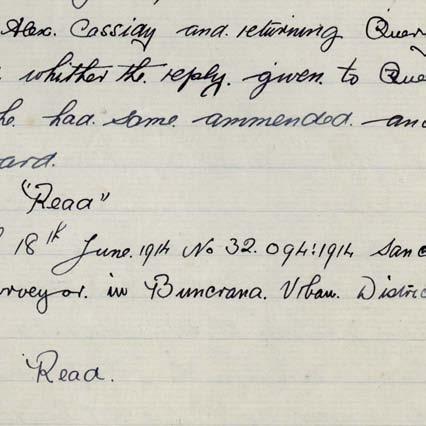 Alex. Cassidy and returning Quer
whither the reply. given to Que
he had same ammended and
ard.
"Read"
18th June. 1914 No 32.094:1914 Sanc
rveyor. in Buncrana. Urban. Distric
Read.